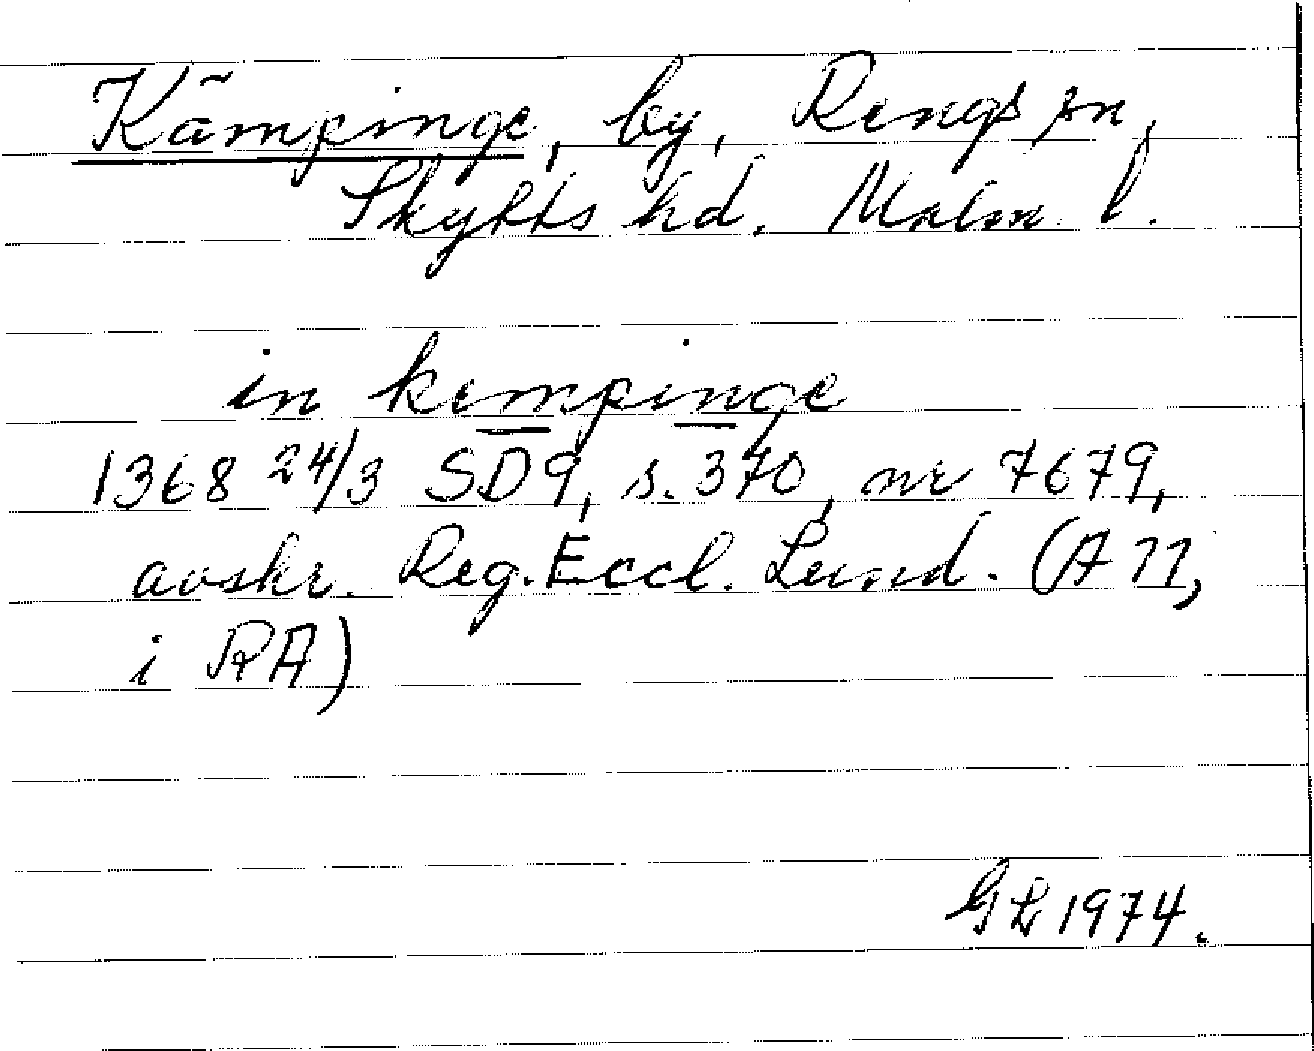 Kämpinge, by, Rengs sn,
Skytts hd. Malm. l.
in kempinge
1368 24/3 SD9, s. 370, nr 7679,
avskr. Reg. Eccl. Lund. (A 77,
i RA)
GL 1974.